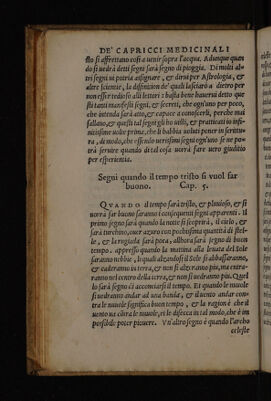 DE' CAPRICCI MEDICINALI
sto si affrettano così a venir sopra l'acqua. Adunque quan
do si vedrà detti segni sarà segno di pioggia. Di molti al-
tri segni vi potria assignare, & dirvi per Astrologia, &
altre scientie, la difinition de' quali lascierò a dietro per
non esser tedioso alli lettori: basta bene havervi detto que
sti tanti manifesti segni, & secreti, che ogn'uno per poco,
che intenda sarà atto, & capace a conoscerli, perche mai
fallano, & questi tal segni gli ho visti, & pratticati io infi-
nitissime volte prima, che li habbia voluti poner in scrittu-
ra, di modo, che essendo verissimi segni ogn'uno se ne po
trà servire quando di tal cosa vorrà fare vero giuditio
per esperientia.
Segni quando il tempo tristo si vuol far
buono. Cap. 5.
QVANDO il tempo sarà tristo, & pluvioso, & si
vorrà far buono saranno i consequenti segni apparenti. Il
primo segno sarà quando la notte si scoprirà, il cielo, &
sarà turchino, over azuro con pochissima quantità di stel-
le, & la rugiada sarà poca, allhora sarà segno di buon
tempo. appresso quando la mattina alla levata del Sole
saranno nebbie, le quali alzandosi il Sole si abbassaranno,
& caderanno in terra, & non si alzeranno più, ma entra-
ranno nel centro della terra, & non si vedranno più. Quel
lo sarà segno di acconciarsi il tempo. Et quando le nuvole
si vedranno andar ad una banda, & il vento andar con-
tra le nuvole significa buon tempo, & la ragion è che il
vento nocivo le nuvole, et le disecca in tal modo, che è im
possibile poter piovere. Un'altro segno è quando l'archo
celeste